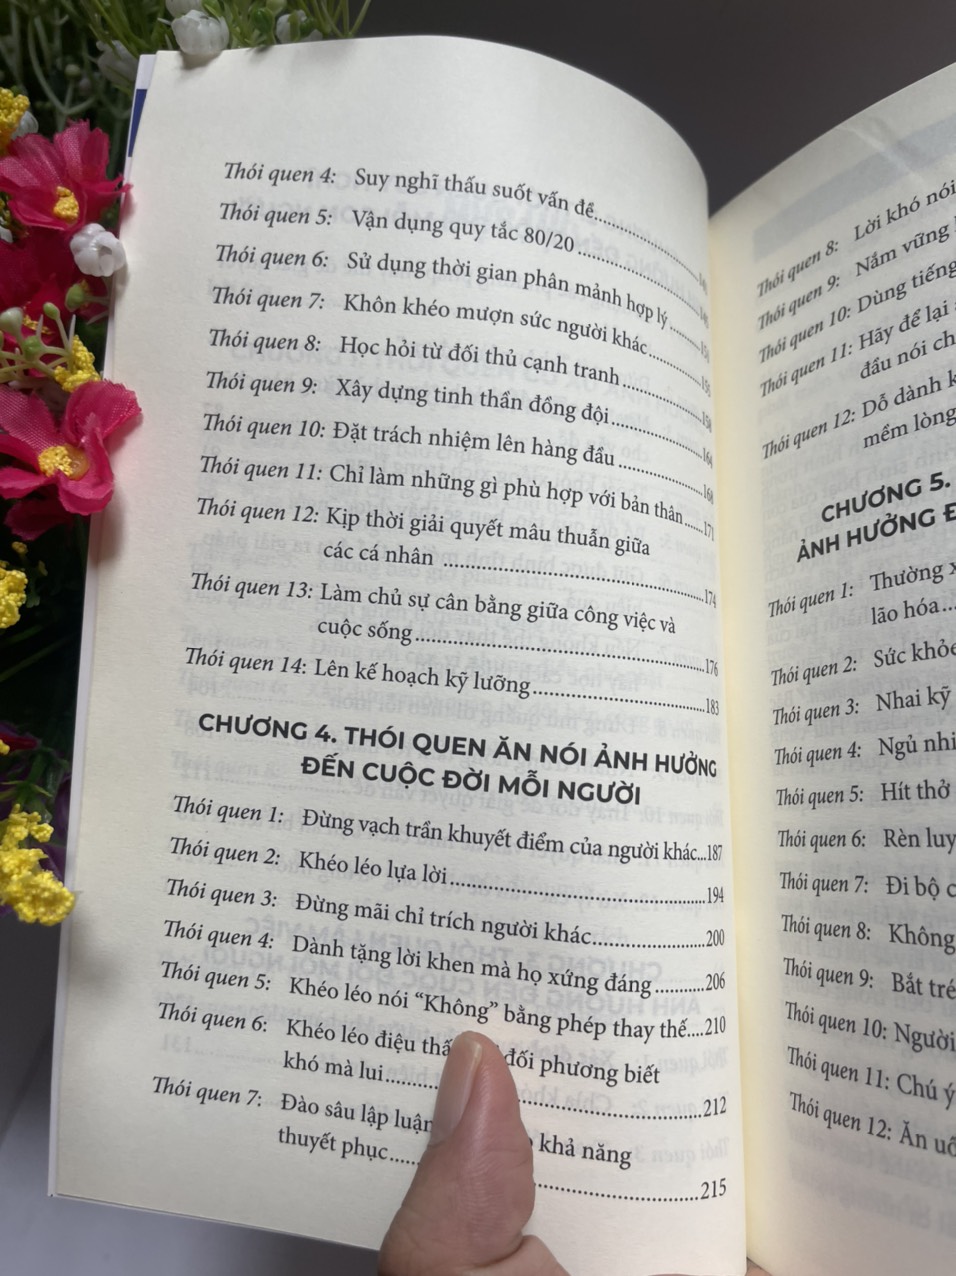 Thói quen 4: Suy nghĩ thấu suốt vấn đề
Thói quen 5: Vận dụng quy tắc 80/20
Thói quen 6: Sử dụng thời gian phân mảnh hợp lý
Thói quen 7: Khôn khéo mượn sức người khác
Thói quen 8: Học hỏi từ đối thủ cạnh tranh
Thói quen 9: Xây dựng tinh thần đồng đội
Thói quen 10: Đặt trách nhiệm lên hàng đầu
Thói quen 11: Chỉ làm những gì phù hợp với bản thân......171
Thói quen 12: Kịp thời giải quyết mâu thuẫn giữa
các cá nhân ..........174
Thói quen 13: Làm chủ sự cân bằng giữa công việc và
cuộc sống..........176
Thói quen 14: Lên kế hoạch kỹ lưỡng..........183
CHƯƠNG 4. THÓI QUEN ĂN NÓI ẢNH HƯỞNG
ĐẾN CUỘC ĐỜI MỖI NGƯỜI
Thói quen 1: Đừng vạch trần khuyết điểm của người khác...187
Thói quen 2: Khéo léo lựa lời..........194
Thói quen 3: Đừng mãi chỉ trích người khác..........200
Thói quen 4: Dành tặng lời khen mà họ xứng đáng ..........206
Thói quen 5: Khéo léo nói “Không” bằng phép thay thế....210
Thói quen 6: Khéo léo điệu đối phương biết
khó mà lui..........212
Thói quen 7: Đào sâu lập luận khả năng
thuyết phục..........215
Thói quen 8: Lời khó nói
Thói quen 9: Nắm vững
Thói quen 10: Dùng tiếng
Thói quen 11: Hãy để lại
đầu nói
Thói quen 12: Dỗ dành
mềm lòng
CHƯƠNG 5.
ẢNH HƯỞNG
Thói quen 1: Thường
lão hóa...
Thói quen 2: Sức khỏe
Thói quen 3: Nhai kỹ
Thói quen 4: Ngủ
Thói quen 5: Hít thở
Thói quen 6: Rèn
Thói quen 7: Đi bộ
Thói quen 8: Không
Thói quen 9: Bắt
Thói quen 10: Người
Thói quen 11: Chú ý
Thói quen 12: Ăn